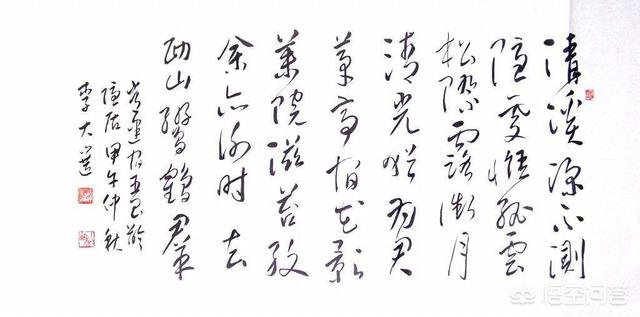 清溪深不測
隱處惟孤雲
松際露微月
清光猶為君
茅亭宿花影
藥院滋苔紋
余亦谢時去
西山鸞鶴群
常建宿王昌齡
隱居甲午仲秋
李大
悟空问答